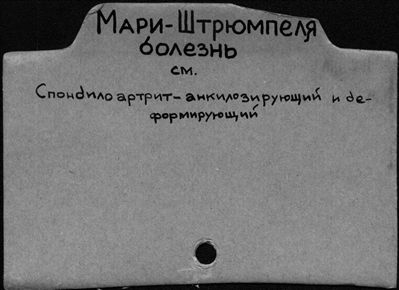 Мари-Штрюмпеля
болезнь
см.
Спондилоартрит-анкилозирующий и де-
формирующий